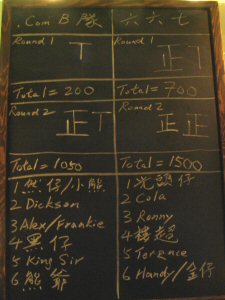 .Com B 隊 六六七
Round 1 Round 1
丅 正丅
Total = 200 Total = 700
Round 2 Round 2
正丅 正正
Total = 1050 Total = 1500
1 熊仔/小熊 1 光頭仔
2 Dickson 2 Cola
3 Alex/Frankie 3 Ronny
4 黑仔 4 樓超
5 King Sir 5 Terence
6 熊爺 6 Handy/金仔